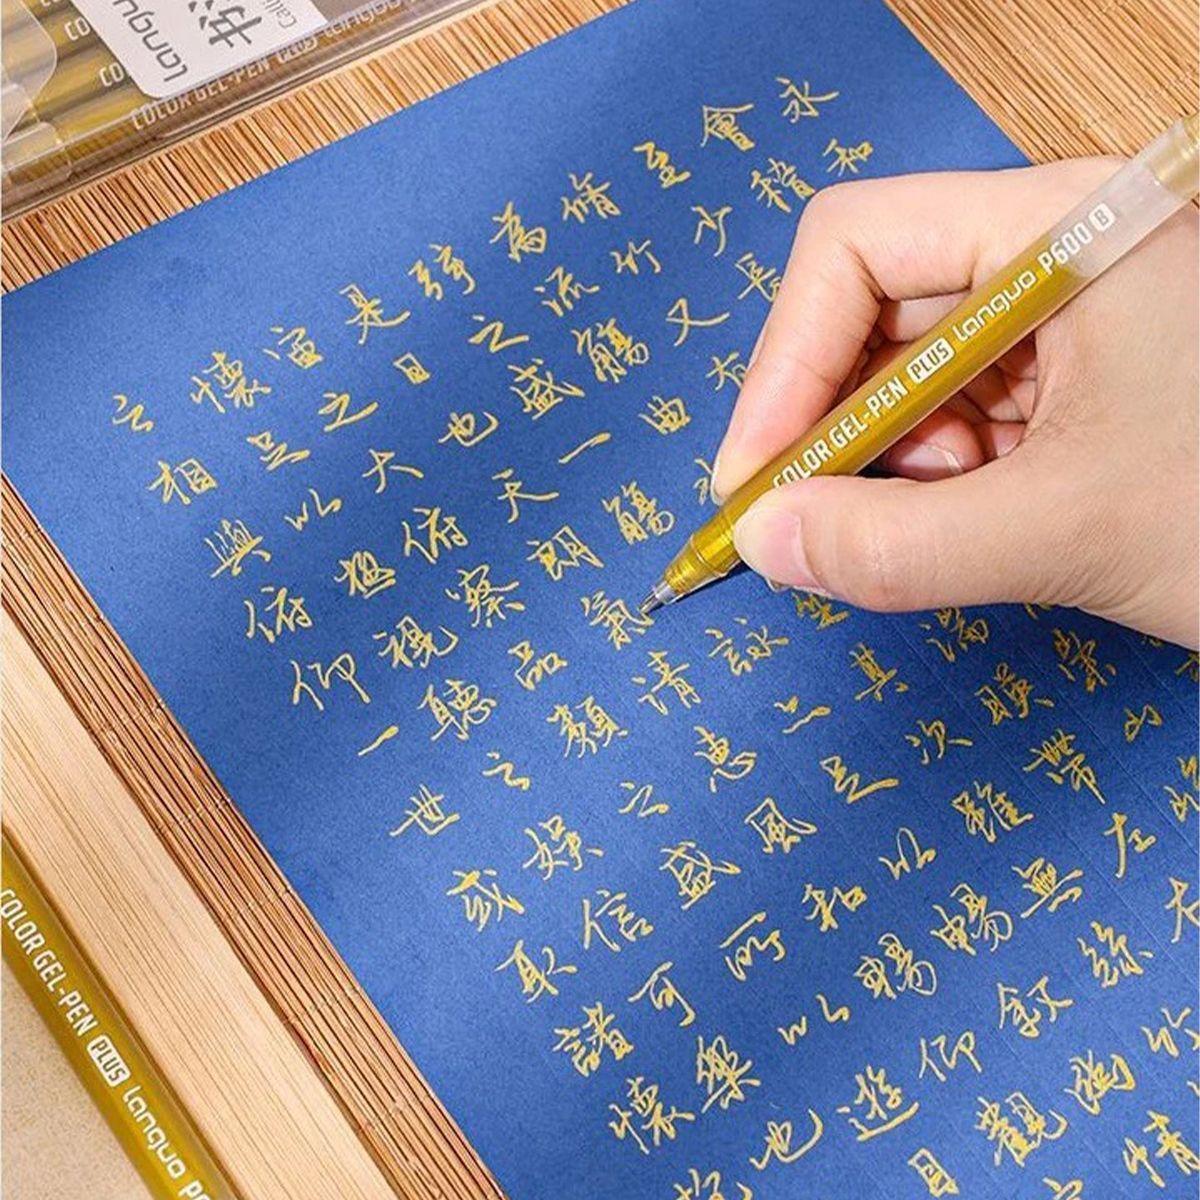 Languo
COLOR GEL-PEN PLUS Languo
COLOR GEL-PEN PLUS Languo P600 B
COLOR GEL-PEN PLUS Languo
永和
會稽
至少長
崇山
脩竹又有
湍映帶左右
為流觴曲水
坐其次雖無絲竹
弦之盛一觴
詠亦足以暢敘幽情
是日也天朗氣清惠風和暢仰觀
宙之大俯察品類之盛所以遊目
懷足以極視聽之娛信可樂也
之相與俯仰一世或取諸懷抱